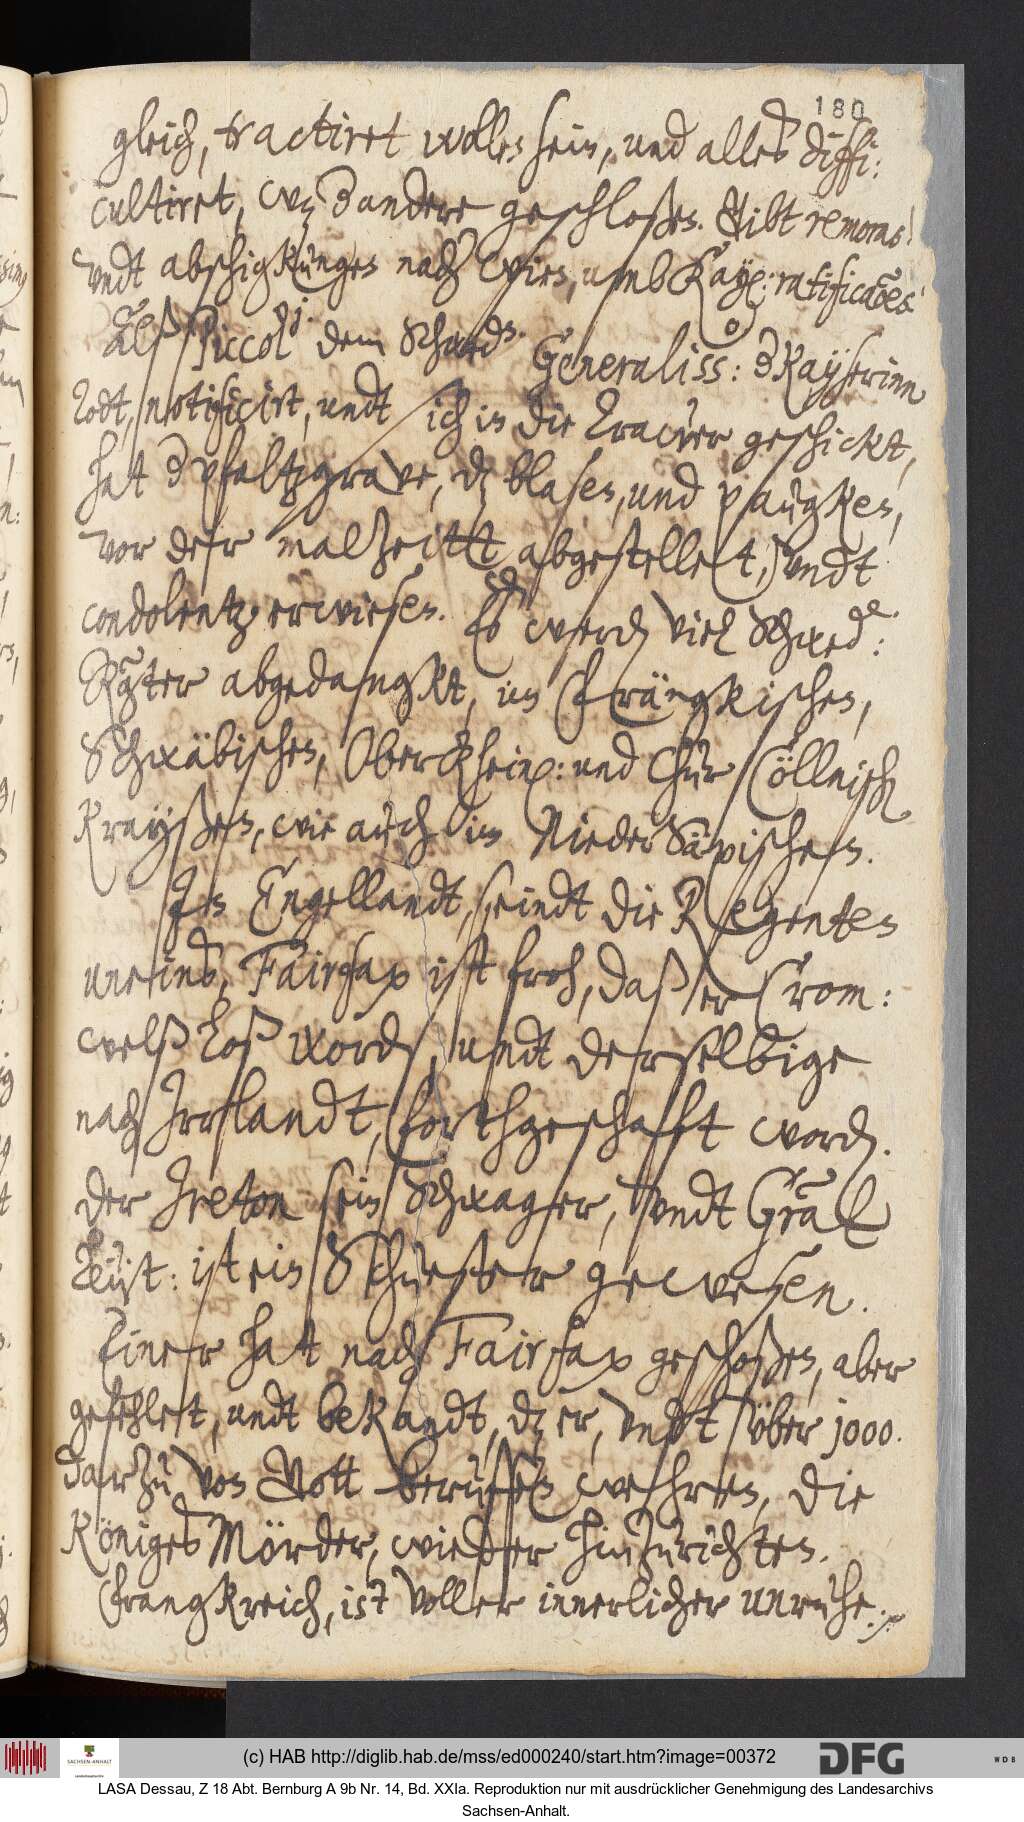 180
gleich, tractiret wollen sein, und alles diffi:
cultiret, wz d andere geschloßen. Gibt remoras
undt abschigkungen nach Wien, umb Kay: ratificaões
Alß Piccol: dem Schwed: Generaliss: d Kayserinn
Todt, notificirt, undt sich in die Trawer geschickt,
hat d Pfaltzgrave, dz blasen, und paugken,
vor der malzeitt abgestellet, undt
condolentz erwiesen. Es werd viel Schwed:
Räter abgedangkt, im Frängkischen,
Schwäbischen, OberRhein: und Chur Cöllnisch
Krayßen, wie auch im NiederSäxischen.
In Engellandt, seindt die Regenten
uneins, Fairfax ist froh, daß er Crom:
welß loß word, undt derselbige
nach Irrlandt, forthgeschafft word.
Der Ireton sein Schwager, undt Gral
Leüt: ist ein Schuester gewesen.
Einer hat nach Fairfax geschoßen, aber
gefehlet, undt bekandt, dz er, undt über 1000.
darzu von Gott beruffen wehren, die
Königes Mörder, wieder hinzurichten.
Frangkreich, ist voller innerlicher unruhe.
(c) HAB http://diglib.hab.de/mss/ed000240/start.htm?image=00372
SACHSEN-ANHALT
DFG
WDB
LASA Dessau, Z 18 Abt. Bernburg A 9b Nr. 14, Bd. XXIa. Reproduktion nur mit ausdrücklicher Genehmigung des Landesarchivs
Sachsen-Anhalt.